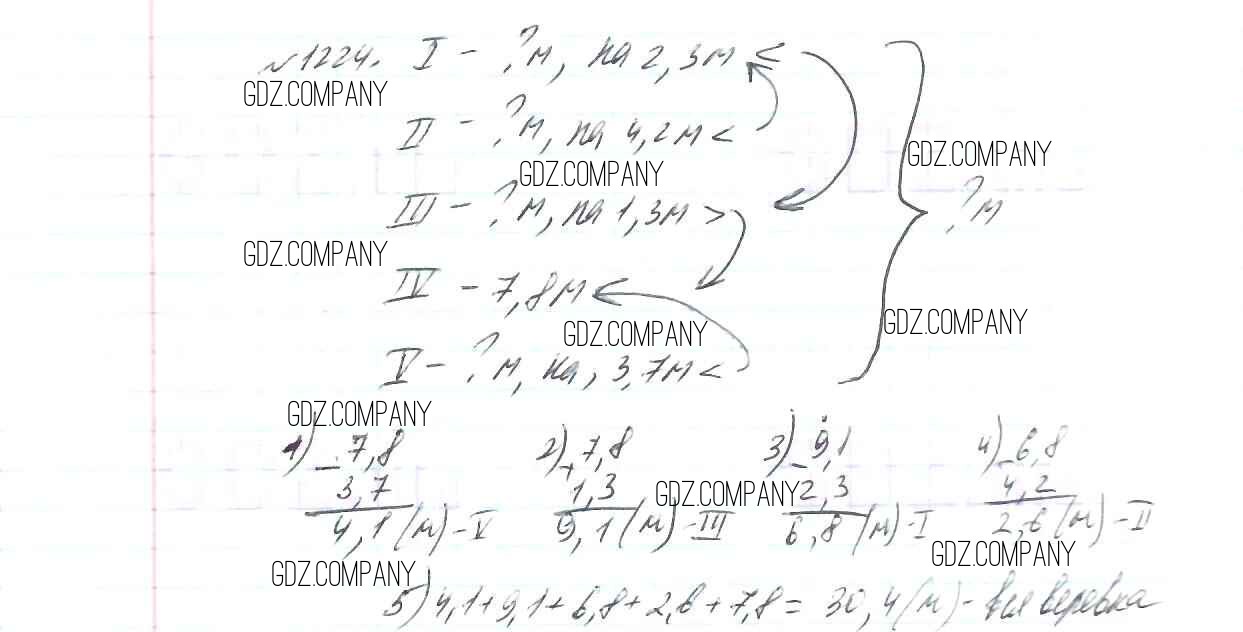 №1224. I - ? м, на 2,3м <
GDZ.COMPANY
II - ? м, на 4,2м <
GDZ.COMPANY
GDZ.COMPANY
III - ? м, на 1,3м > ? м
GDZ.COMPANY
IV - 7,8м
GDZ.COMPANY
GDZ.COMPANY
V - ? м, на, 3,7м <
GDZ.COMPANY
1) - 7,8 2) + 7,8 3) - 9,1 4) - 6,8
3,7 1,3 GDZ.COMPANY 2,3 4,2
4,1 (м) - V 9,1 (м) - III 6,8 (м) - I 2,6 (м) - II
GDZ.COMPANY
GDZ.COMPANY
5) 4,1+9,1+6,8+2,6+7,8 = 30,4 (м) - вся веревка